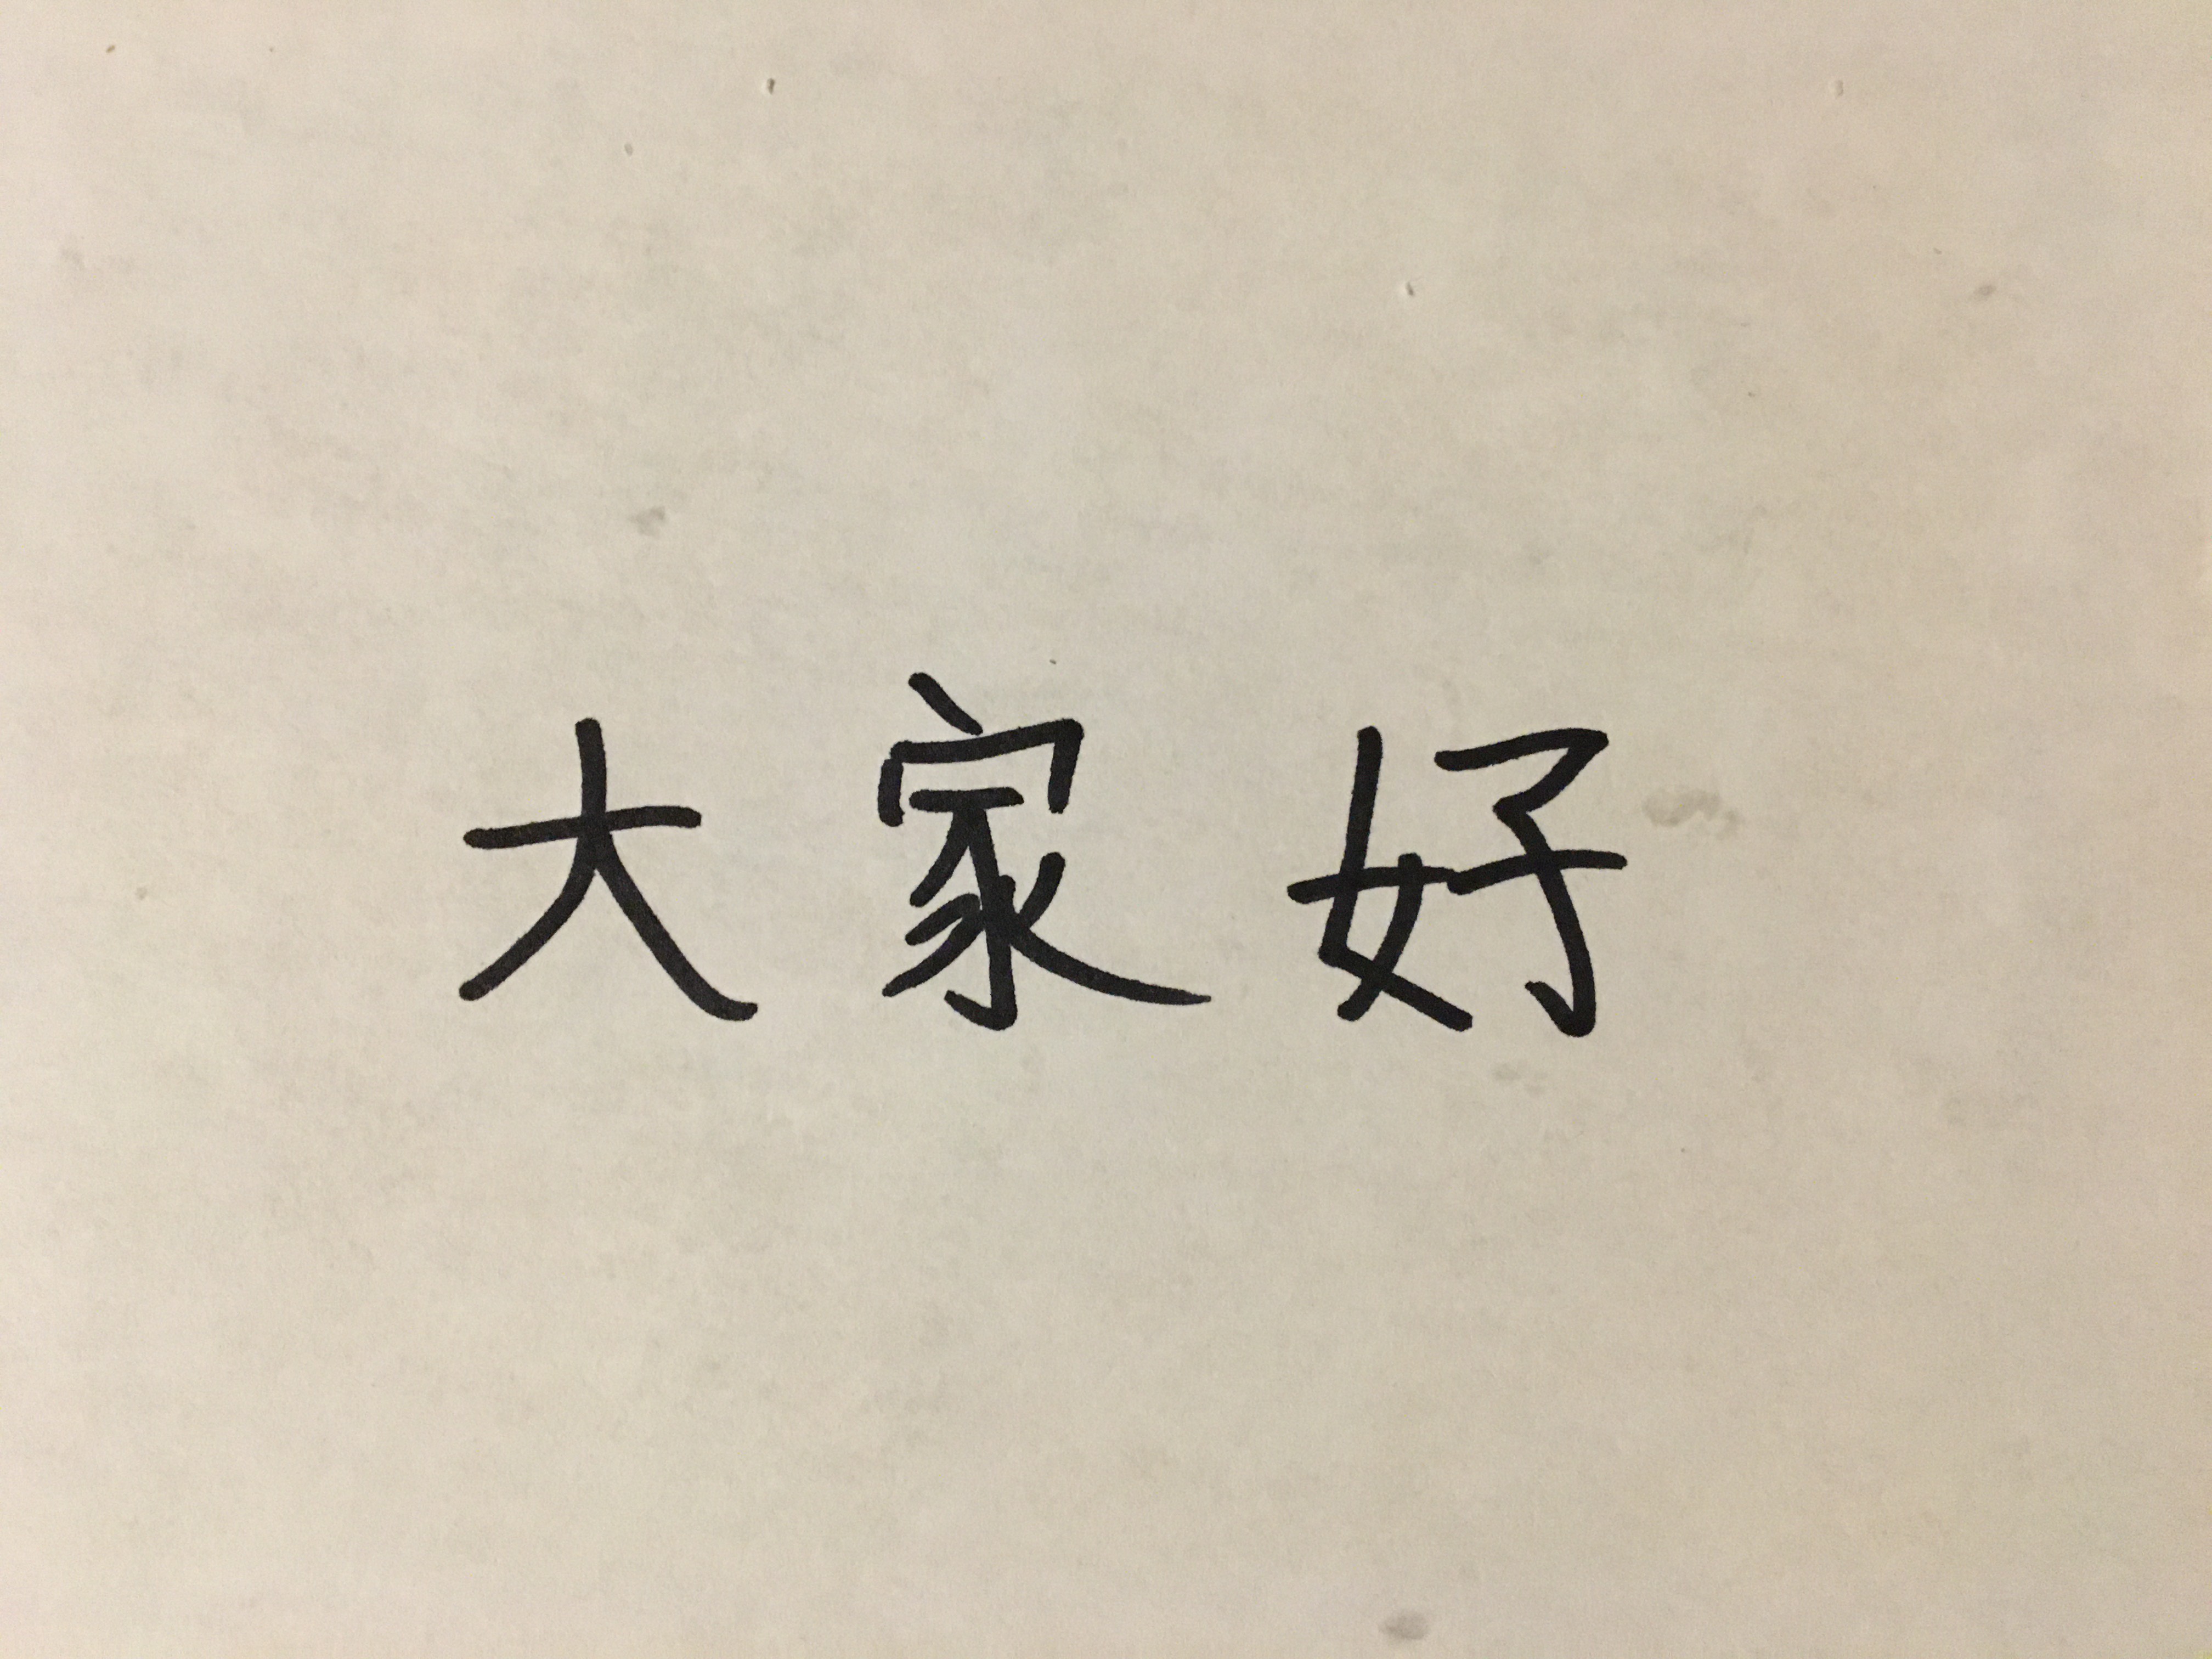 大家好